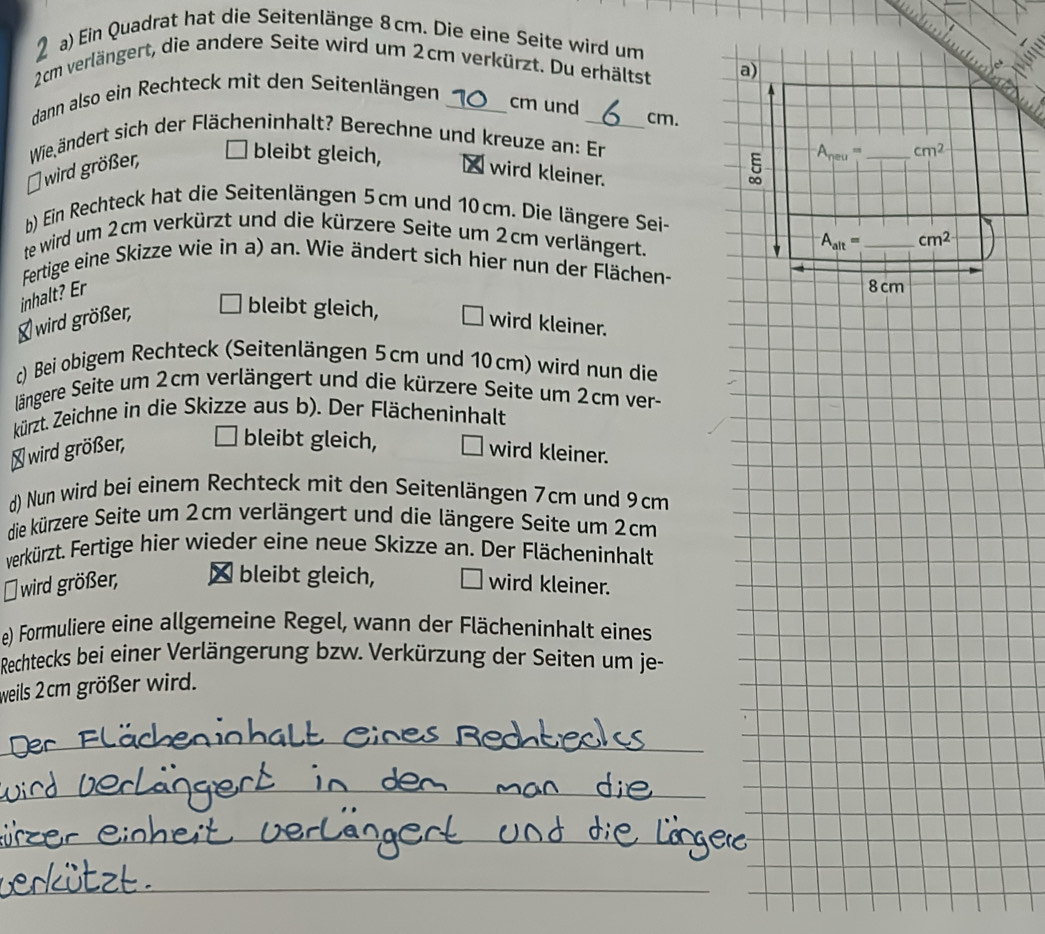 2 a) Ein Quadrat hat die Seitenlänge 8 cm. Die eine Seite wird um
2 cm verlängert, die andere Seite wird um 2 cm verkürzt. Du erhältst
dann also ein Rechteck mit den Seitenlängen 10 cm und 6 cm.
Wie ändert sich der Flächeninhalt? Berechne und kreuze an: Er
☐ wird größer, ☐ bleibt gleich, ☒ wird kleiner.
b) Ein Rechteck hat die Seitenlängen 5 cm und 10 cm. Die längere Sei-
te wird um 2 cm verkürzt und die kürzere Seite um 2 cm verlängert.
Fertige eine Skizze wie in a) an. Wie ändert sich hier nun der Flächen-
inhalt? Er
☒ wird größer, ☐ bleibt gleich, ☐ wird kleiner.
c) Bei obigem Rechteck (Seitenlängen 5 cm und 10 cm) wird nun die
längere Seite um 2 cm verlängert und die kürzere Seite um 2 cm ver-
kürzt. Zeichne in die Skizze aus b). Der Flächeninhalt
☒ wird größer, ☐ bleibt gleich, ☐ wird kleiner.
d) Nun wird bei einem Rechteck mit den Seitenlängen 7 cm und 9 cm
die kürzere Seite um 2 cm verlängert und die längere Seite um 2 cm
verkürzt. Fertige hier wieder eine neue Skizze an. Der Flächeninhalt
☐ wird größer, ☒ bleibt gleich, ☐ wird kleiner.
e) Formuliere eine allgemeine Regel, wann der Flächeninhalt eines
Rechtecks bei einer Verlängerung bzw. Verkürzung der Seiten um je-
weils 2 cm größer wird.
Der Flächeninhalt eines Rechtecks
wird verlängert in dem man die
kürzer einheit verlängert und die längere
verkützt.
a)
8 cm
A_neu = ____ cm²
A_alt = ____ cm²
8 cm